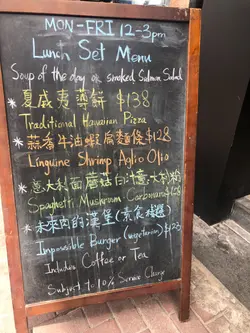 MON-FRI 12-3pm
Lunch Set Menu
Soup of the day or smoked Salmon Salad
*夏威夷薄餅 $138
Traditional Hawaiian Pizza
*蒜香牛油蝦扁麵 $128
Linguine Shrimp Aglio Olio
*意大利面蘑菇白汁意大利粉
Spaghetti Mushroom Carbonara $128
*未來肉的漢堡(素食精選)
Impossible Burger (vegetarian) $128
Includes Coffee or Tea
Subject to 10% Service Charge